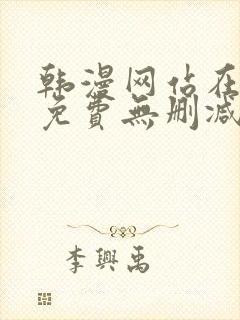 韩漫网站在
免費無刪减
李興禹